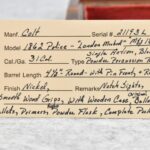 Manf. Colt Serial # 21193 L
Model 1862 Police - "London Marked" Mfg 1863
Single Action, Blk
Cal./Ga. .31 Cal. Type Powder Percussion R
Barrel Length 4½" Round - With Pin Front, + R
Finish Nickel, Remarks Notch Sights,
Smooth Wood Grips, With Wooden Case, Ball
Primers, Powder Flask, Complete Pack